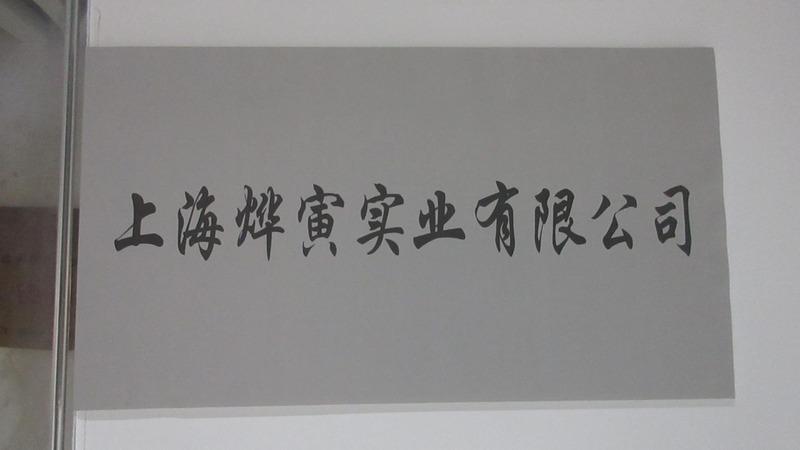 上海烨寅实业有限公司